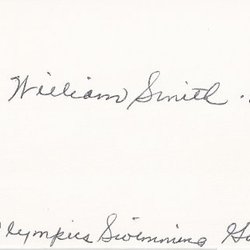 William Smith
Olympics Swimming